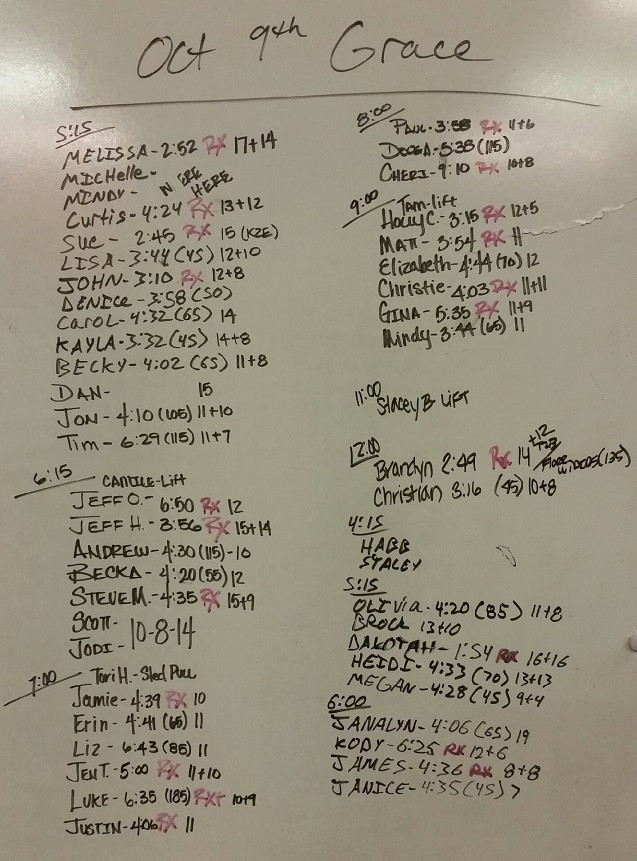 Oct 9th Grace
5:15
MELISSA - 2:52 RX 17+14
MICHelle -
MINDY - WERE HERE
Curtis - 4:24 RX 13+12
Sue - 2:45 RX 15 (K2E)
LISA - 3:44 (45) 12+10
JOHN - 3:10 RX 12+8
DENICE - 3:58 (50)
CAROL - 4:32 (65) 14
KAYLA - 3:32 (45) 14+8
BECKY - 4:02 (65) 11+8
DAN - 15
JON - 4:10 (105) 11+10
Tim - 6:29 (115) 11+7
6:15
CANDICE - Lift
JEFF O. - 6:50 RX 12
JEFF H. - 3:56 RX 15+14
ANDREW - 4:30 (115) - 10
BECKA - 4:20 (55) 12
STEVE M. - 4:35 RX 15+9
SCOTT -
JODI - 10-8-14
7:00
Tori H. - Sled Pull
Jamie - 4:39 RX 10
Erin - 4:41 (65) 11
Liz - 6:43 (85) 11
JEN T. - 5:00 RX 11+10
LUKE - 6:35 (185) RX+ 10+9
JUSTIN - 4:06 RX 11
8:00
PAUL - 3:58 RX 11+6
- 5:35 (115)
CHERI - 9:10 RX 10+8
9:00
Tam - lift
Holly C. - 3:15 RX 12+5
MATT - 3:54 RX 11
Elizabeth - 4:44 (70) 12
Christie - 4:03 RX 11+11
GINA - 5:35 RX 11+9
Mindy - 3:44 (65) 11
11:00
Stacey B LIFT
12:00
Brandyn 2:49 RX 14 +12
(135)
Christian 3:16 (45) 10+8
4:15
HABB
STACEY
5:15
OLIVia - 4:20 (85) 11+8
BROCK 13+10
DAKOTAH - 1:54 RX 16+16
HEIDI - 4:33 (70) 13+13
MEGAN - 4:28 (45) 9+4
6:00
JANALYN - 4:06 (65) 19
KODY - 6:25 RX 12+6
JAMES - 4:36 RX 8+8
JANICE - 4:35 (45) 7